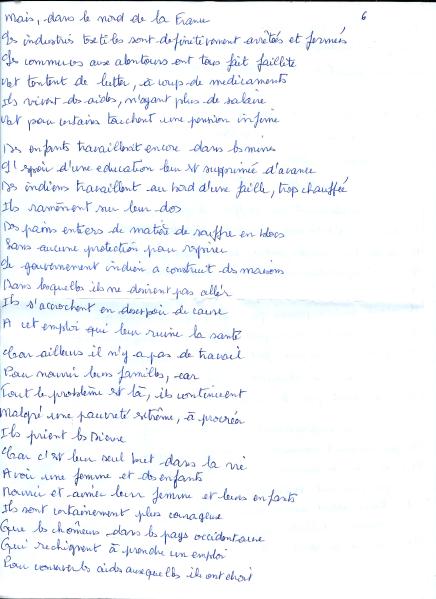 6
Mais, dans le nord de la France
Les industries textiles sont definitivement arrêtées et fermées
Les commerces aux alentours ont tous fait faillite
tentent de lutter, à coups de medicaments
Ils vivent des aides, n'ayant plus de salaire
pour certains touchent une pension infime
Des enfants travaillent encore dans les mines
L'espoir d'une education leur est supprimée d'avance
Des indiens travaillent au bord d'une faille, trop chauffée
Ils ramènent sur leur dos
Des pains entiers de matière de souffre en blocs
Sans aucune protection pour respirer
Le gouvernement indien a construit des maisons
Dans lesquelles ils ne doivent pas aller
Ils s'accrochent en desespoir de cause
A cet emploi qui leur ruine la santé
Car ailleurs il n'y a pas de travail
Pour nourrir leurs familles, car
Tout le problème est là, ils continuent
Malgré une pauvreté extrême, à procréer
Ils prient les Dieux
Car c'est leur seul but dans la vie
Avoir une femme et des enfants
Nourrir et aimer leur femme et leurs enfants
Ils sont certainement plus courageux
Que les chômeurs dans les pays occidentaux
Qui rechignent à prendre un emploi
Pour conserver les aides auxquelles ils ont droit